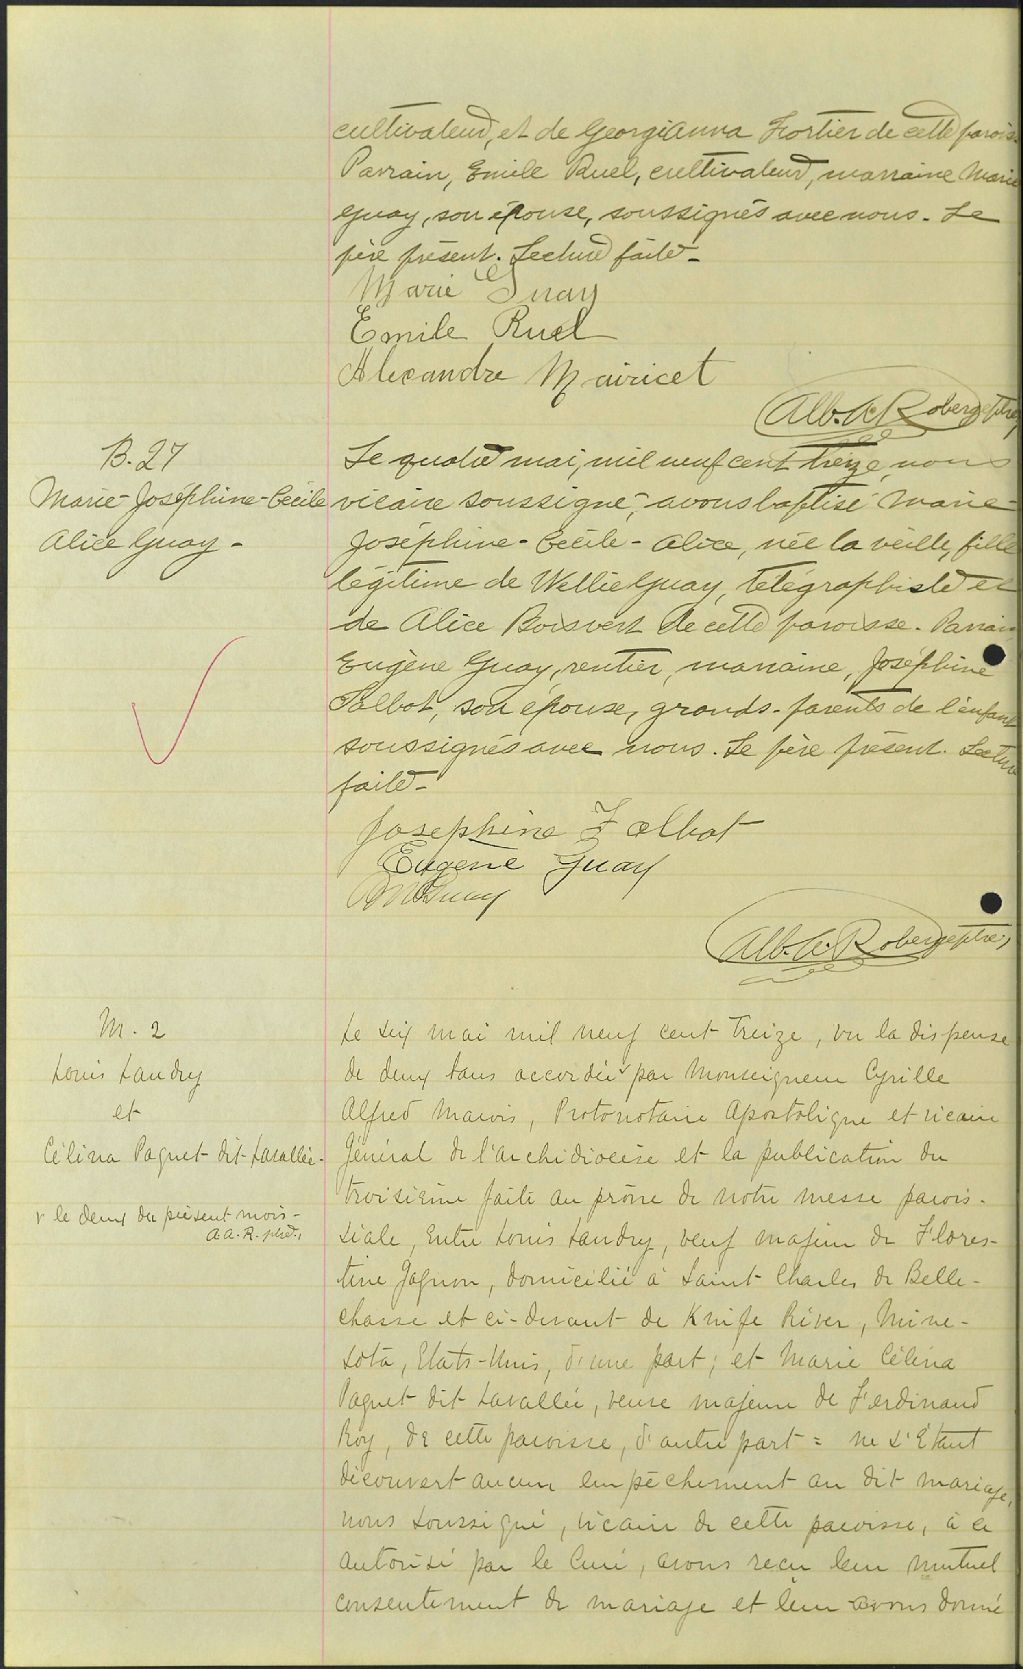 cultivateur, et de Georgianna Fortier de cette parois.
Parrain, Emile Ruel, cultivateur, marraine Marie
Guay, son épouse, soussignés avec nous. Le
père présent. Lecture faite.
Marie Guay
Emile Ruel
Alexandre Mairicet
Alb. A. Roberge ptre,
B. 27
Marie-Joséphine-Cécile
Alice Guay -
Le quatre mai, mil neuf cent treize, nous
vicaire soussigné, avons baptisé Marie-
Joséphine-Cécile-Alice, née la veille, fille
légitime de Wellie Guay, télégraphiste et
de Alice Boisvert de cette paroisse. Parrain,
Eugène Guay, rentier, marraine, Joséphine
Talbot, son épouse, grands-parents de l'enfant
soussignés avec nous. Le père présent. Lecture
faite -
Josephine Talbot
Eugene Guay
Guay
Alb. A. Roberge ptre,
M. 2
Louis Landry
et
Célina Paquet dit Lavallée.
v le deux du présent mois -
A.A.R. ptre,
Le six mai mil neuf cent treize, vu la dispense
de deux bans accordée v par Monseigneur Cyrille
Alfred Marois, Protonotaire Apostolique et vicaire
Général de l'archidiocèse et la publication du
troisième faite au prône de notre messe parois-
siale, Entre Louis Landry, veuf majeur de Flores-
tine Gagnon, domicilié à Saint Charles de Belle-
chasse et ci-devant de Knife River, Mine-
sota, Etats-Unis, d'une part; et Marie Célina
Paquet dit Lavallée, veuve majeure de Ferdinand
Roy, de cette paroisse, d'autre part = ne s'étant
découvert aucun empêchement au dit mariage,
nous soussigné, vicaire de cette paroisse, à ce
autorisé par le Curé, avons reçu leur mutuel
consentement de mariage et leur avons donné